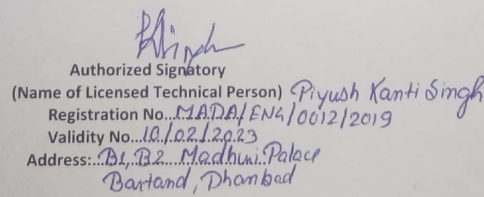 Authorized Signatory
(Name of Licensed Technical Person) Piyush Kanti Singh
Registration No...MADA/ENG/0012/2019
Validity No...10/02/2023
Address:..B1, B2 Madhuri Palace
Bartand, Dhanbad